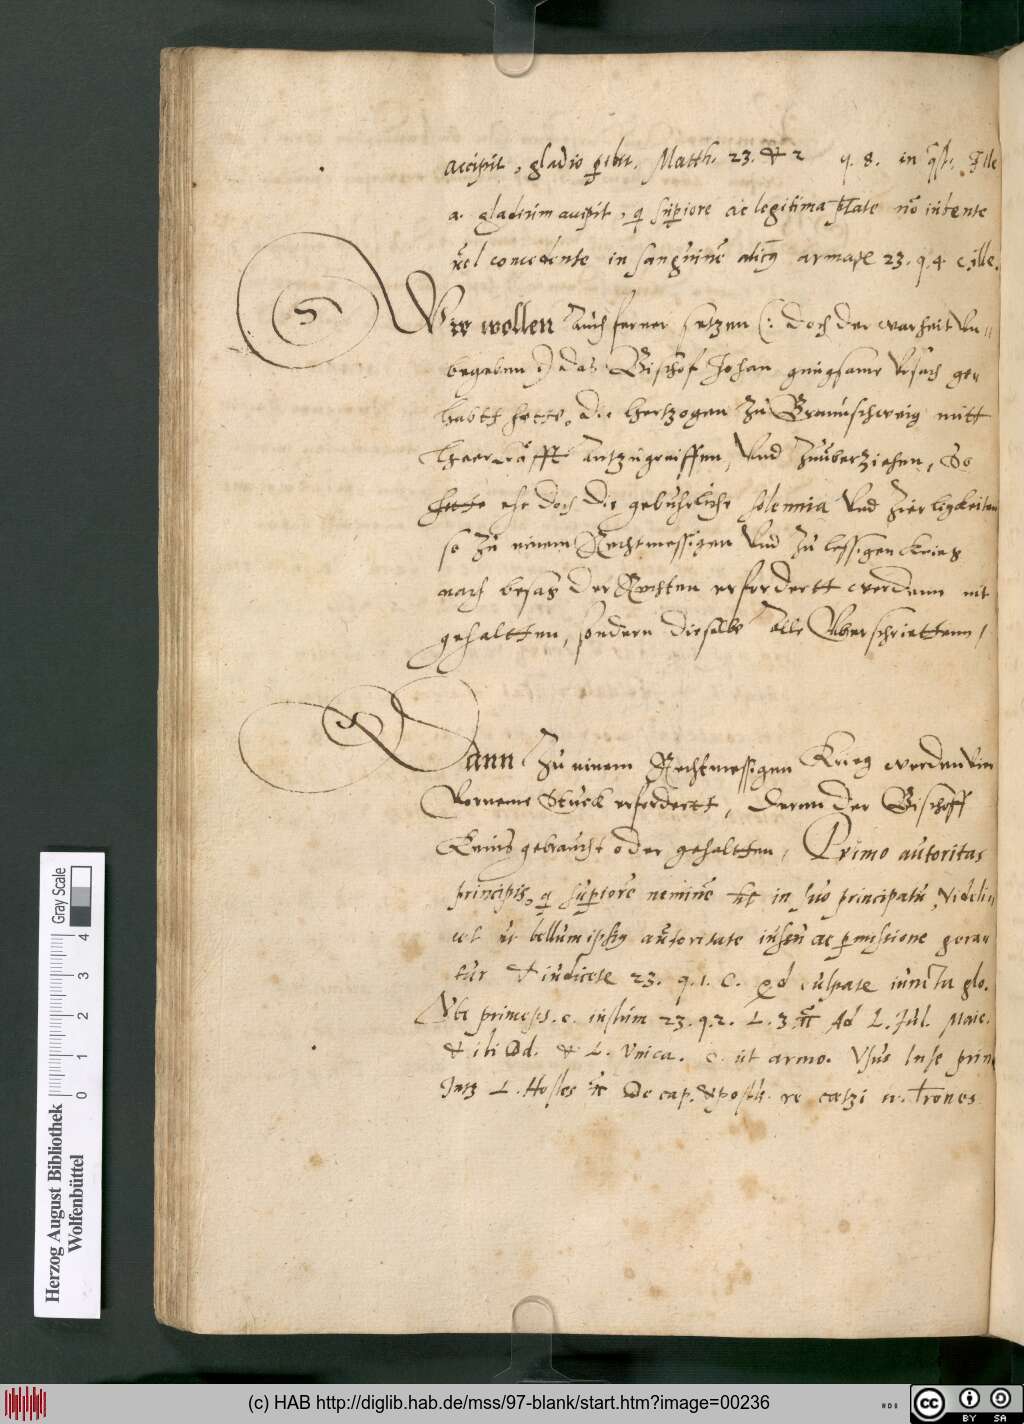 accipit, gladio peribit. Matth. 23. & 2 q. 8. in
a. gladium accipit, q superiore ac legitima ptate nō iubente
vel concedente in sanguinē armatʳ 23. q. 4. c. ille.
Wir wollen Auch ferner setzen (: doch der warheit Vn=
begeben :) das Bischof Johan gnugsame Vrsach ge=
habtt hette, die Hertzogen zu Braunschweig mitt
Heerkrafft Antzugreiffen, Vnd zuuberziehen, So
hette ehr doch die gebuhrliche solennia Vnd zierligkeiten
so zu einem Rechtmessigen Vnd zulessigen Krieg
nach besag der Rechten erfordertt werdenn nit
gehaltten, sondern dieselbe Alle Vberschriettenn,
Dann Zu einem Rechtmessigen Krieg werden Vier
Vorneme Stuck erfordertt, deren der Bischoff
Keins gebraucht oder gehaltten, Primo autoritas
principis, q superiorē neminē in suo principatu, Videli=
cet ut bellum ipsius autoritate iussu ac pmissione gera=
tur & indicetʳ 23. q. 1. C. Qd culpatʳ iuncta glo.
Vbi princeps. c. iustum 23. q. 2. L. 3 Ad L. Jul. Maie.
& ibi Dd. & L. Vnica. C. ut armo. Vsus
L. Hostes De cap. & postli. re
Herzog August Bibliothek
Wolfenbüttel
0 1 2 3 4
Gray Scale
(c) HAB http://diglib.hab.de/mss/97-blank/start.htm?image=00236
HAB
cc BY SA